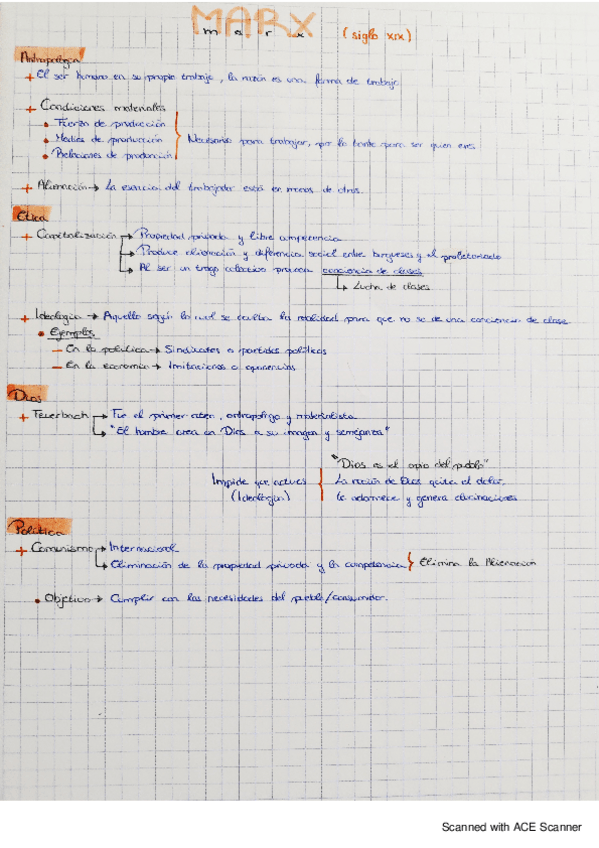 MARX
m a r x (siglo XIX)
Antropología
+ El ser humano en su propio trabajo, la razón es una forma de trabajo
+ Condiciones materiales
• Fuerza de producción
• Medios de producción
• Relaciones de producción
Necesario para trabajar, por lo tanto para ser quien eres
+ Alienación → La esencia del trabajador está en manos de otros.
Ética
+ Capitalización → Propiedad privada y libre competencia
→ Produce alienación y diferencia social entre burgueses y el proletariado
→ Al ser un trabajo colectivo provoca conciencia de clases
→ Lucha de clases
+ Ideología → Aquello según lo cual se oculta la realidad para que no se de una conciencia de clase
• Ejemplos
– En la política → Sindicatos o partidos políticos
– En la economía → Imitaciones o apariencias
Dios
+ Feuerbach → Fue el primer ateo, antropólogo y materialista
→ "El hombre crea en Dios a su imagen y semejanza"
"Dios es el opio del pueblo"
Impide que actúes
(Ideología)
La noción de Dios quita el dolor,
le adormece y genera alucinaciones
Política
+ Comunismo → Internacional
→ Eliminación de la propiedad privada y la competencia } Elimina la Alienación
• Objetivo → Cumplir con las necesidades del pueblo/consumidor.
Scanned with ACE Scanner